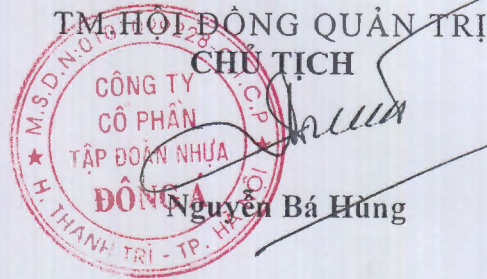 TM. HỘI ĐỒNG QUẢN TRỊ
CHỦ TỊCH
CÔNG TY
CỔ PHẦN
TẬP ĐOÀN NHỰA
ĐÔNG Á
H. THANH TRÌ - TP. HÀ NỘI
Nguyễn Bá Hùng